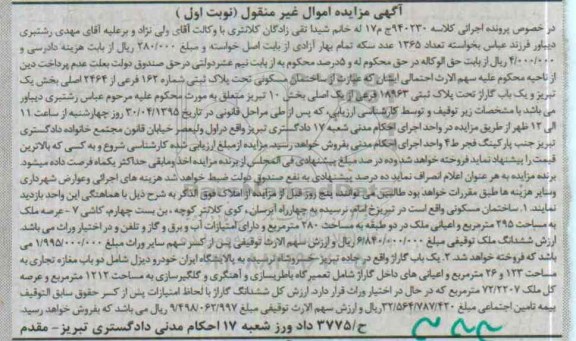 آگهی مزایده اموال غیر منقول (نوبت اول)
در خصوص پرونده اجرائی کلاسه ۹۴۰۲۳۰ج م۱۷ له خانم شیدا تقی زادگان کلانتری با وکالت آقای ولی نژاد و برعلیه آقای مهدی رشتبری
دیباور فرزند عباس بخواسته تعداد ۱۳۶۵ عدد سکه تمام بهار آزادی از بابت اصل خواسته و مبلغ ۲۸۰/۰۰۰ ریال از بابت هزینه دادرسی و
۴/۰۰۰/۰۰۰ ریال از بابت حق الوکاله در حق محکوم له و ۵درصد محکوم به از بابت نیم عشردولتی درحق صندوق دولت بعلت عدم پرداخت دین
از ناحیه محکوم علیه سهم الارث احتمالی ایشان که عبارت از ساختمان مسکونی تحت پلاک ثبتی شماره ۱۶۲ فرعی از ۲۴۶۴ اصلی بخش یک
تبریز و یک باب گاراژ تحت پلاک ثبتی ۱۸۹۶۳ فرعی از یک اصلی بخش ۱۰ تبریز متعلق به مورث محکوم علیه مرحوم عباس رشتبری دیباور
می باشد با مشخصات زیر توقیف و توسط کارشناسی ارزیابی، که پس از طی مراحل قانونی در تاریخ ۳۰/۰۴/۱۳۹۵ روز چهارشنبه از ساعت ۱۱
الی ۱۲ ظهر از طریق مزایده در واحد اجرای احکام مدنی شعبه ۱۷ دادگستری تبریز واقع دراول ولیعصر خیابان قانون مجتمع خانواده دادگستری
تبریز جنب پارکینگ فجر ط۴ واحد اجرای احکام مدنی بفروش خواهد رسید. مزایده ازمبلغ ارزیابی شده کارشناسی شروع و به کسی که بالاترین
قیمت را پیشنهاد نماید فروخته خواهد شد وده در صد مبلغ پیشنهادی فی المجلس از برنده مزایده اخذ ومابقی حداکثر یکماه فرصت داده میشود.
برنده مزایده به هر عنوان اعلام انصراف نماید ده درصد پیشنهادی به نفع صندوق دولت ضبط خواهد شد هزینه های اجرائی وعوارض شهرداری
وسایر هزینه ها طبق مقررات خواهد بود طالبین می توانند پنج روز قبل از مزایده از املاک فوق الذکر به شرح ذیل با هماهنگی این واحد بازدید
نمایند. ۱. ساختمان مسکونی واقع است در تبریزخ امام نرسیده به چهارراه آبرسان، کوی کلانتر کوچه، بن بست چهارم، کاشی ۷ - عرصه ملک
به مساحت ۲۹۵ مترمربع و اعیانی ملک در دو طبقه به مساحت ۲۸۰ مترمربع و دارای امتیازات آب و برق و گاز و تلفن و در اختیار وراث می باشد.
ارزش ششدانگ ملک توقیفی مبلغ ۶/۸۴۰/۰۰۰/۰۰۰ ریال و ارزش سهم الارث توقیفی پس از کسر سهم سایر وراث مبلغ ۱/۹۹۵/۰۰۰/۰۰۰ می
باشد که فروخته خواهد شد. ۲. یک باب گاراژ واقع در جاده تبریز خسروشاه نرسیده به پالایشگاه ایران خودرو دیزل شامل دو باب مغازه تجاری به
مساحت ۱۲۳ و ۲۶ مترمربع و اعیانی های داخل گاراژ شامل تعمیرگاه باطری سازی و آهنگری و گلگیرسازی به مساحت ۱۲۱۲ مترمربع و عرصه
کل ملک ۷۲/۲۲۰۷ مترمربع که در حال در اختیار وراث قرار دارد. ارزش کل ششدانگ گاراژ با لحاظ امتیازات پس از کسر حقوق سابق التوقیف
بیمه تامین اجتماعی مبلغ ۳۲/۵۶۴/۷۸۷/۴۲۰ریال و ارزش سهم الارث توقیفی مبلغ ۹/۴۹۸/۰۶۲/۹۹۷ ریال می باشد که بفروش خواهد رسید.
ح/۳۷۷۵ داد ورز شعبه ۱۷ احکام مدنی دادگستری تبریز- مقدم